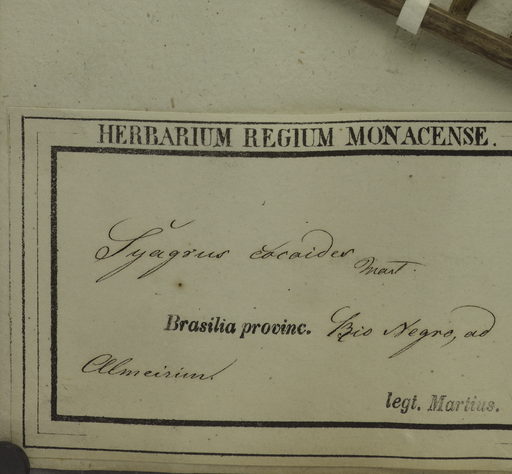 HERBARIUM REGIUM MONACENSE.
Syagrus cocoides
Mart.
Brasilia provinc. Rio Negro, ad
Almeirim.
legt. Martius.